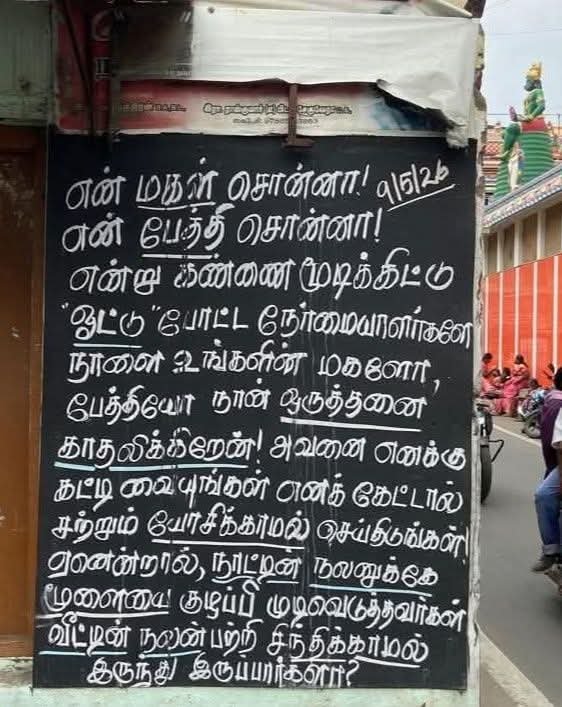 என் மகள் சொன்னா! 9/5/26
என் பேத்தி சொன்னா!
என்று கண்ணை மூடிக்கிட்டு
"ஓட்டு" போட்ட நேர்மையாளர்களே
நாளை உங்களின் மகளோ,
பேத்தியோ நான் ஒருத்தனை
காதலிக்கிறேன்! அவனை எனக்கு
கட்டி வையுங்கள் எனக் கேட்டால்
சற்றும் யோசிக்காமல் செய்திடுங்கள்!
ஏனென்றால், நாட்டின் நலனுக்கே
மூளையை குழப்பி முடிவெடுத்தவர்கள்
வீட்டின் நலன் பற்றி சிந்திக்காமல்
இருந்து இருப்பார்களா?